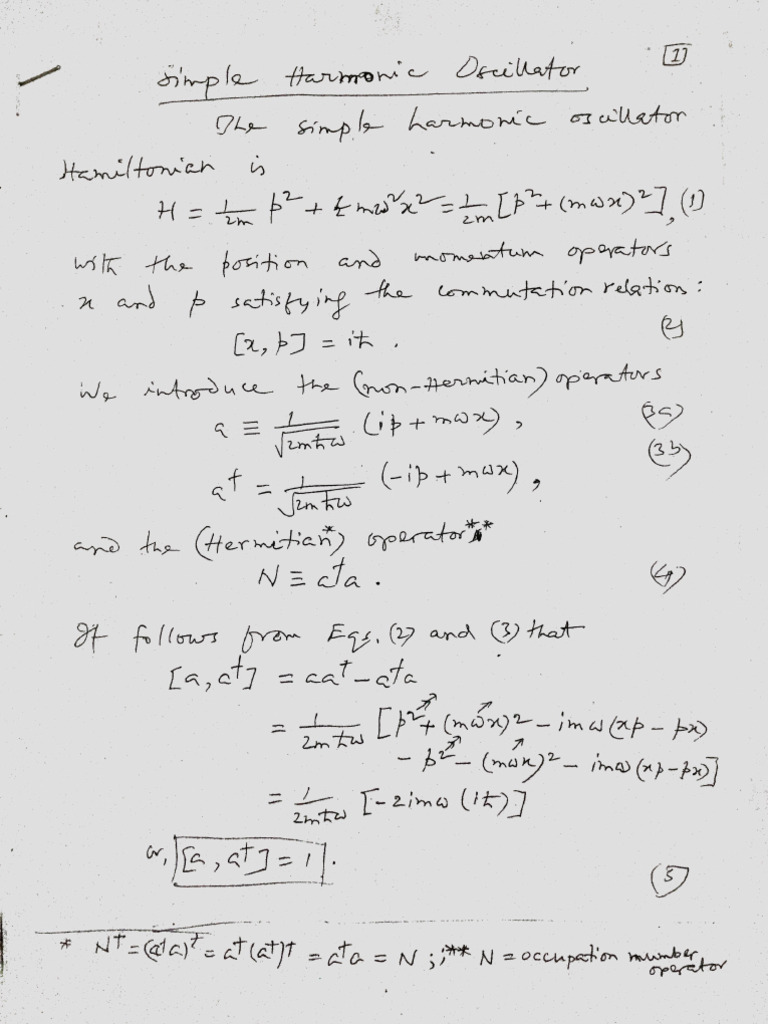 [1]
Simple Harmonic Oscillator
The simple harmonic oscillator
Hamiltonian is
H = 1/2m p² + ½ mω²x² = 1/2m [p² + (mωx)²], (1)
with the position and momentum operators
x and p satisfying the commutation relation:
[x, p] = iħ . (2)
We introduce the (non-Hermitian) operators
a ≡ 1/√2mħω (ip + mωx), (3a)
a† = 1/√2mħω (-ip + mωx), (3b)
and the (Hermitian*) operator**
N ≡ a†a . (4)
It follows from Eqs. (2) and (3) that
[a, a†] = aa† - a†a
= 1/2mħω [p² + (mωx)² - imω(xp - px)
- p² - (mωx)² - imω(xp - px)]
= 1/2mħω [-2imω(iħ)]
or, [a, a†] = 1 . (5)
* N† = (a†a)† = a†(a†)† = a†a = N ; ** N = occupation number
operator